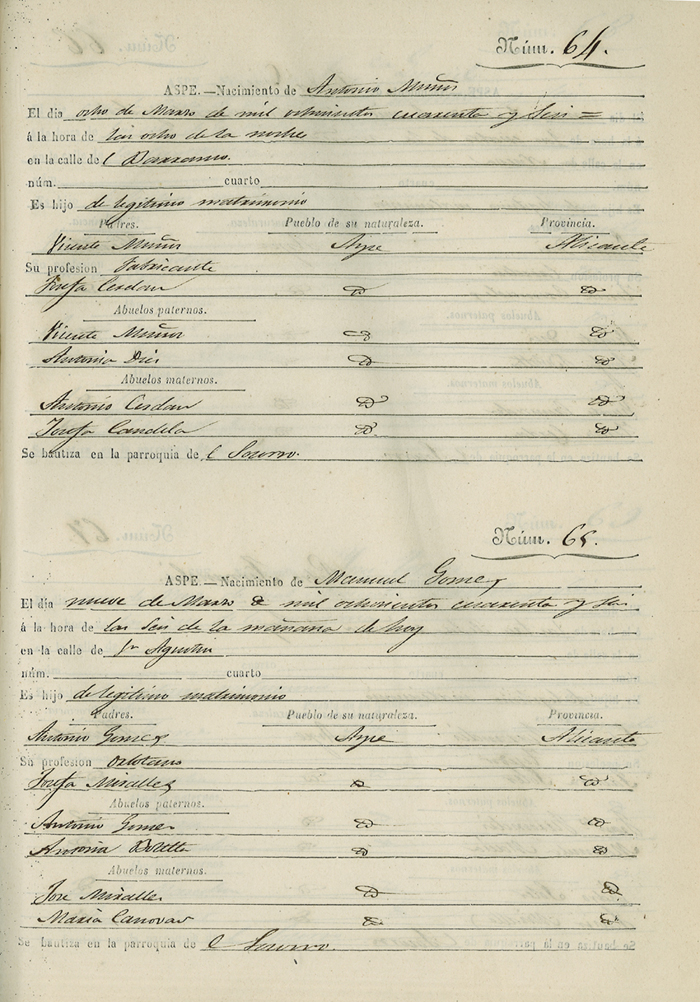 Núm. 64.
ASPE.—Nacimiento de Antonio Muñós
El dia ocho de Marzo de mil ochocientos cuarenta y seis =
á la hora de las ocho de la noche
en la calle de l Barranco.
núm. cuarto
Es hijo de legitimo matrimonio
Padres. Pueblo de su naturaleza. Provincia.
Vicente Muñós Aspe Alicante
Su profesion Fabricante
Josefa Cerdan
Abuelos paternos.
Vicente Muñós
Antonia
Abuelos maternos.
Antonio Cerdan
Josefa Candela
Se bautiza en la parroquia de l Socorro.
Núm. 65.
ASPE.—Nacimiento de Manuel Gomez
El dia nueve de Marzo de mil ochocientos cuarenta y seis
á la hora de las seis de la mañana de hoy
en la calle de Sn Agustin
núm. cuarto
Es hijo de legitimo matrimonio
Padres. Pueblo de su naturaleza. Provincia.
Antonio Gomez Aspe Alicante
Su profesion
Josefa Miralles
Abuelos paternos.
Antonio Gomez
Antonia Botella
Abuelos maternos.
Jose Miralles
Maria Canovas
Se bautiza en la parroquia de l Socorro.